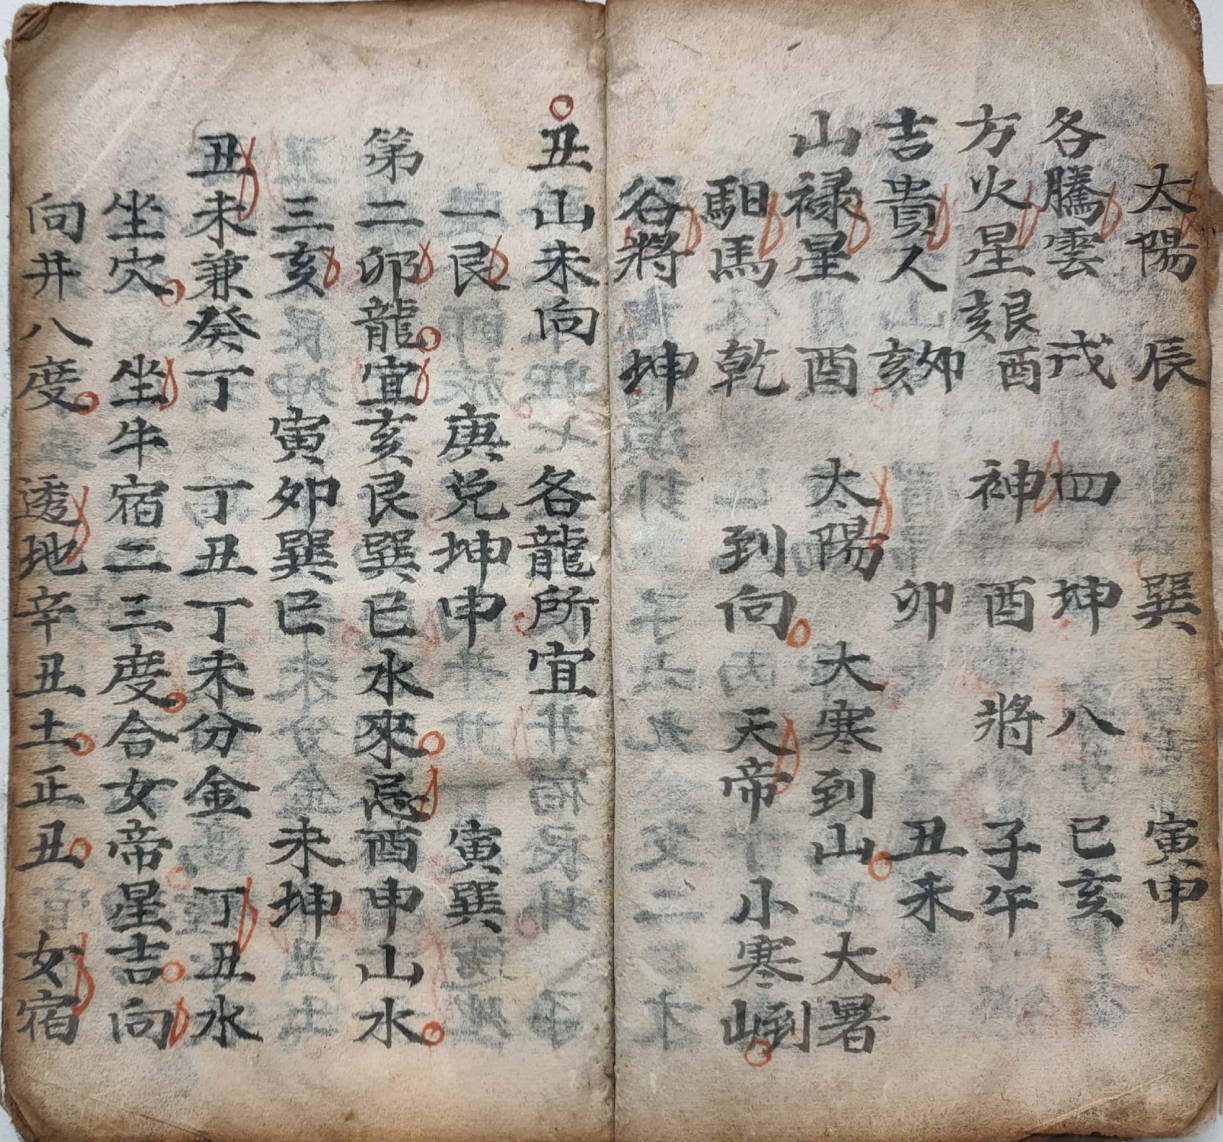 太陽 辰 巽 寅申
各騰雲 戌 四坤八 巳亥
方火星艮亥酉 神酉將 子午
吉貴人卯亥 卯 丑未
山禄星酉 太陽 大寒到山 大暑
馹馬乾 到向 天帝 小寒到山
谷將 坤
丑山未向 各龍所宜
一艮 庚兌坤申 寅巽
第二卯龍宜亥艮巽巳水來忌酉申山水
三亥 寅卯巽巳 未坤
丑未兼癸丁 丁丑丁未分金 丁丑水
坐穴 坐牛宿二三度合女帝星吉向
向井八度 透地辛丑土正丑 女宿